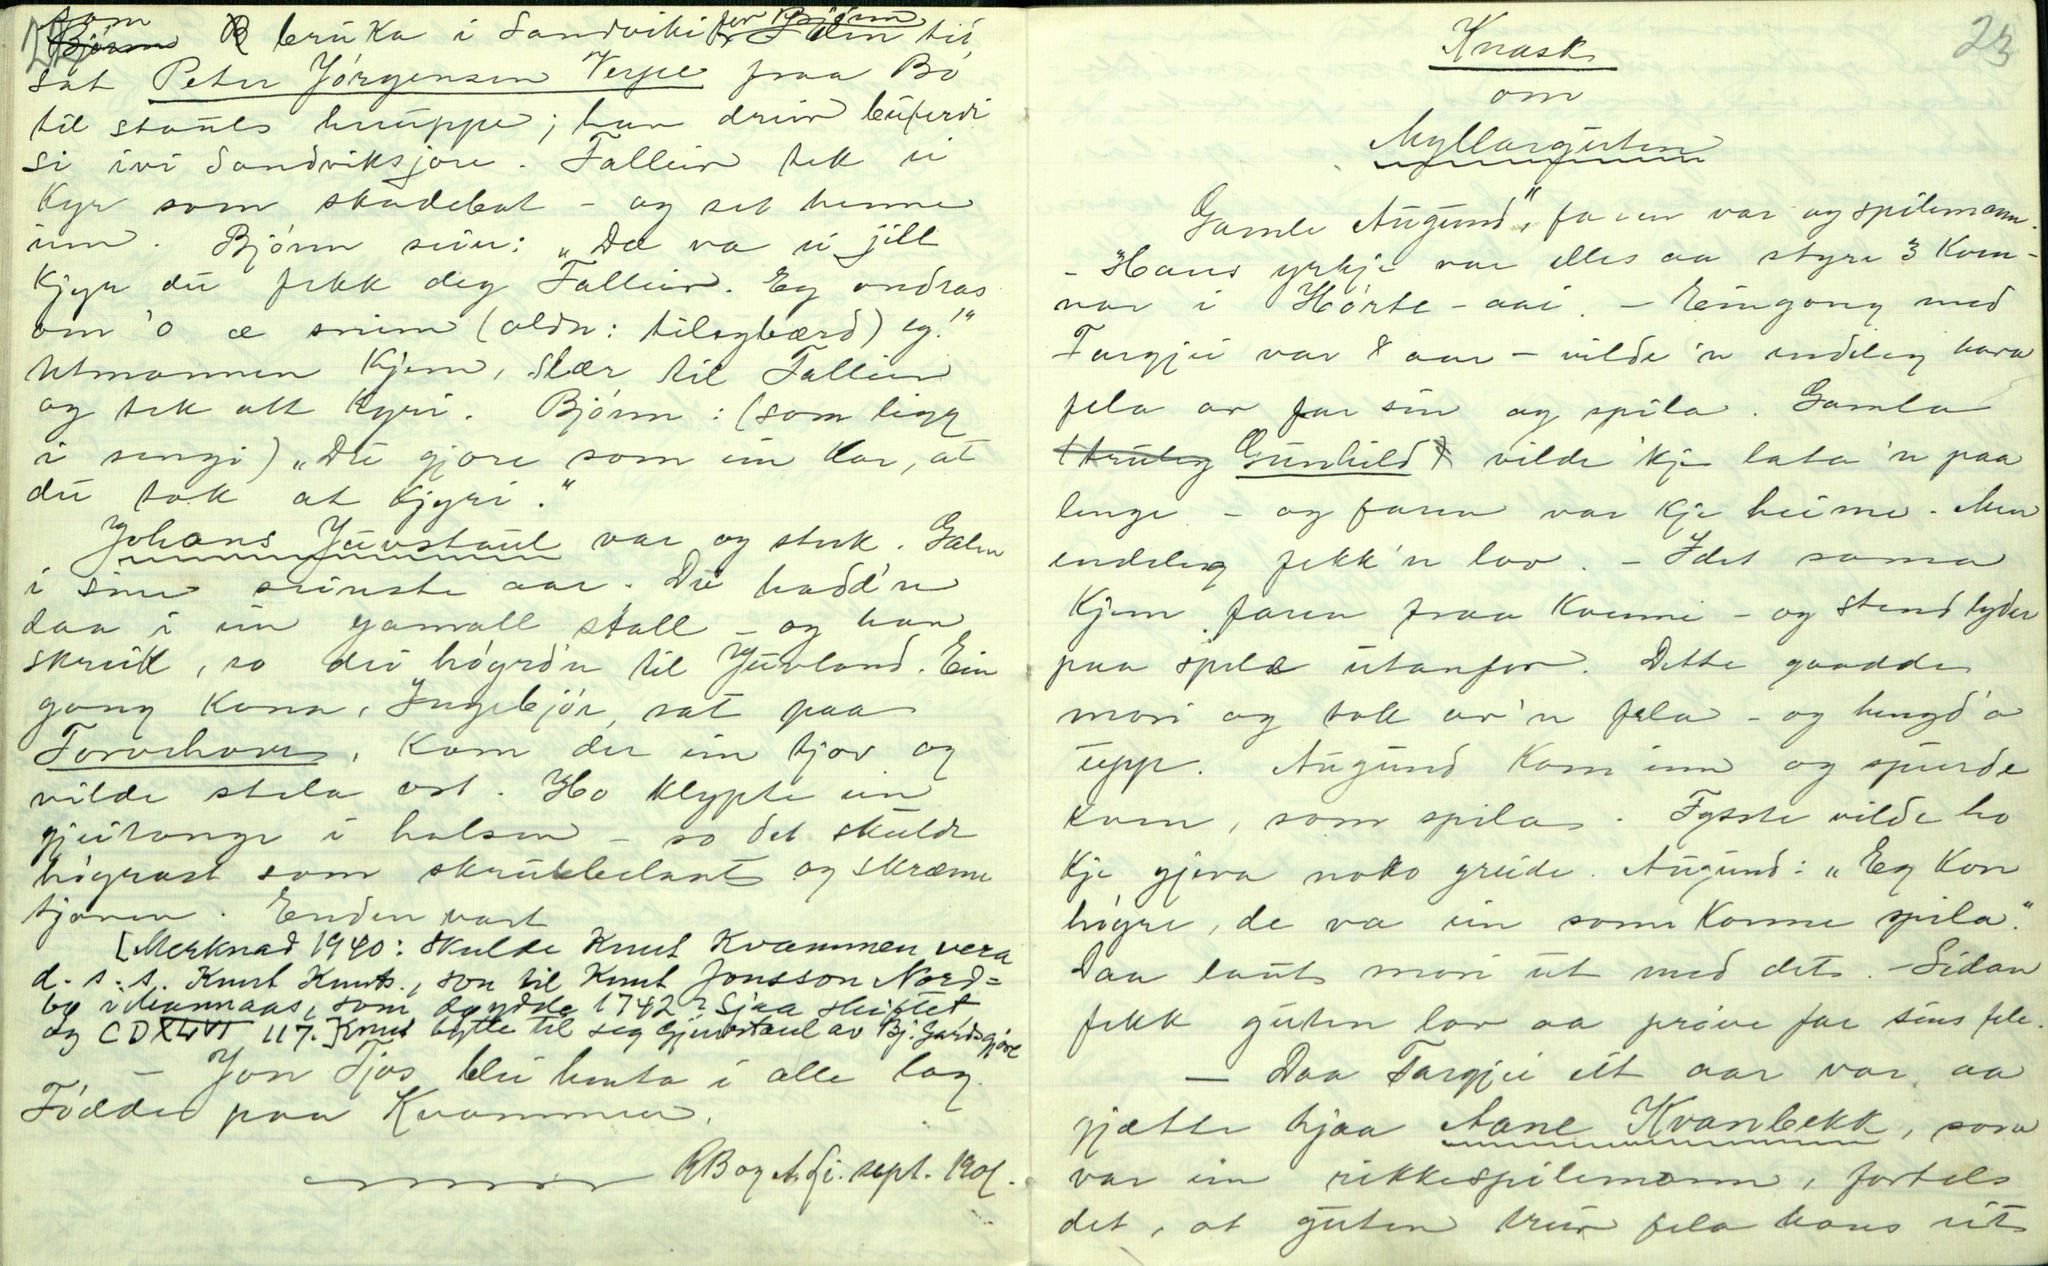 som
Bjørn bruka i Sandviki før Bjørn til
sat Peter Jörgensen Verpe fraa Bö
til stauls huuppe; han dreiv buferdi
si ivi Sandviksjore. Falleiv tek ei
Kyr som skadebot – og set henne
inn. Bjönn seier: „Dæ va ei jill
Kjyr du fekk deg Falleiv. Eg ondras
om 'o æ snim (aldr: tilsgbærd) eg!"
Utmannen Kjem, slær til Falleiv
og tek att kyri. Bjönn: (som ligg
i sengi) „Du gjore som ein kar, at
du tok at kjyri."
Johans Juvstaul var og sterk. Galen
i sine seinste aar. Dei hadd'n
daa i ein gamall stall – og han
skreik, so dei högrd'n til Juvland. Ein
gong kona, Ingebjör, sat paa
Torvehovs, kom der ein tjov og
vilde stela ost. Ho klypte ein
gjeitunge i halsen – so det skulde
högrast som skrubbelant og skræme
tjoven. Enden vart
[Merknad 1940: Skulde Knut Kvammen vera
d.s.s. Knut Knuts., son til Knut Jonsson Nord-
bø i Mannaas, som døydde 1742? Sjaa skiftet
og CD XLVI 117.] Knut bytte til seg Gjuvstaul av Bj. Gardsgjore
– Jon Tjos blei henta i alle lag.
Födde paa Kvammen.
RB og A. Li. sept. 1901.
23
Knask
om
Myllarguten
Gamle Augund", faren var og spilemann.
– Hans yrkje var elles aa styre 3 Kven-
nar i Hörte-aai. – Eingong med
Targjei var 8 aar – vilde'n endeleg hava
fela av far sin og spila. Gamla
(truleg Gunhild) vilde 'kje lata'n paa
lenge – og faren var kje heime. Men
endeleg fekk'n lov. – I det sama
Kjem faren fraa Kvenni – og stend lyder
paa spelæ utanfor. Dette gaadde
mori og tok av'n fela – og hengd'a
upp. Augund kom inn og spurde
kven, som spila. Fysste vilde ho
kje gjeva noko greide. Augund: „Eg kon
högre, de va ein som konne spila."
Daa laut mori ut med det. – Sidan
fekk guten lov aa pröve far sins fele.
– Daa Targjei eit aar var aa
gjætte hjaa Aane Kvanbekk, som
var ein rikkespilemann, fortels
det, at guten treiv fela hans ut